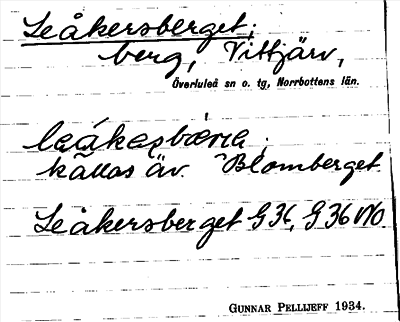 Leåkersberget;
berg, Vittjärv,
Överluleå sn o. tg, Norrbottens län.
kallas äv. Blomberget
Leåkersberget G 36, G 36 NO.
GUNNAR PELLIJEFF 1934.